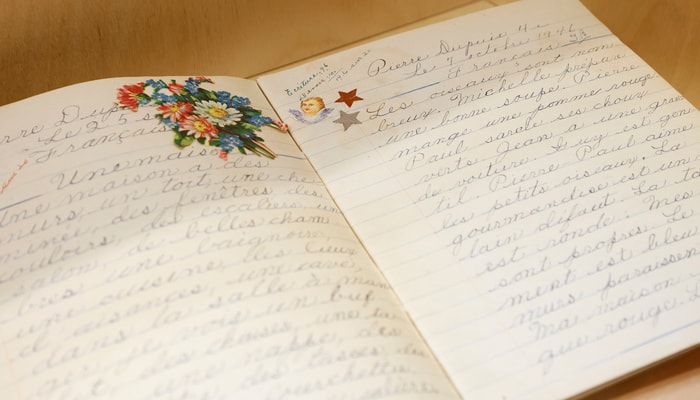 rre Dup
Le 25 s
Français
Une maison
Une maison a des
murs, un toit, une che
minée, des fenêtres des
des escaliers, un
ouloirs, de belles cham
salon,
bres une baignoire,
une cuisine des lieux
d'aisances, une cave,
dans la salle à man
ger, je vois un buf
fet, des chaises, une ta
une nappe, des
des tasses, du
fourchettes
Ecriture, 98
Pierre Dupuis 4e
Le 7 octobre 1946
Français
Les oiseaux sont nom
breux. Michelle prépare
une bonne soupe. Pierre
mange une pomme rouge
Paul sarcle ses choux
verts. Jean a une
de voiture. Guy est gen
til. Pierre Paul aime
les petits oiseaux. La
gourmandise est un
lain défaut. La ta
est ronde. Mes
sont propres. Le
ment est bleu
murs paraissen
Ma maison
que rouge.